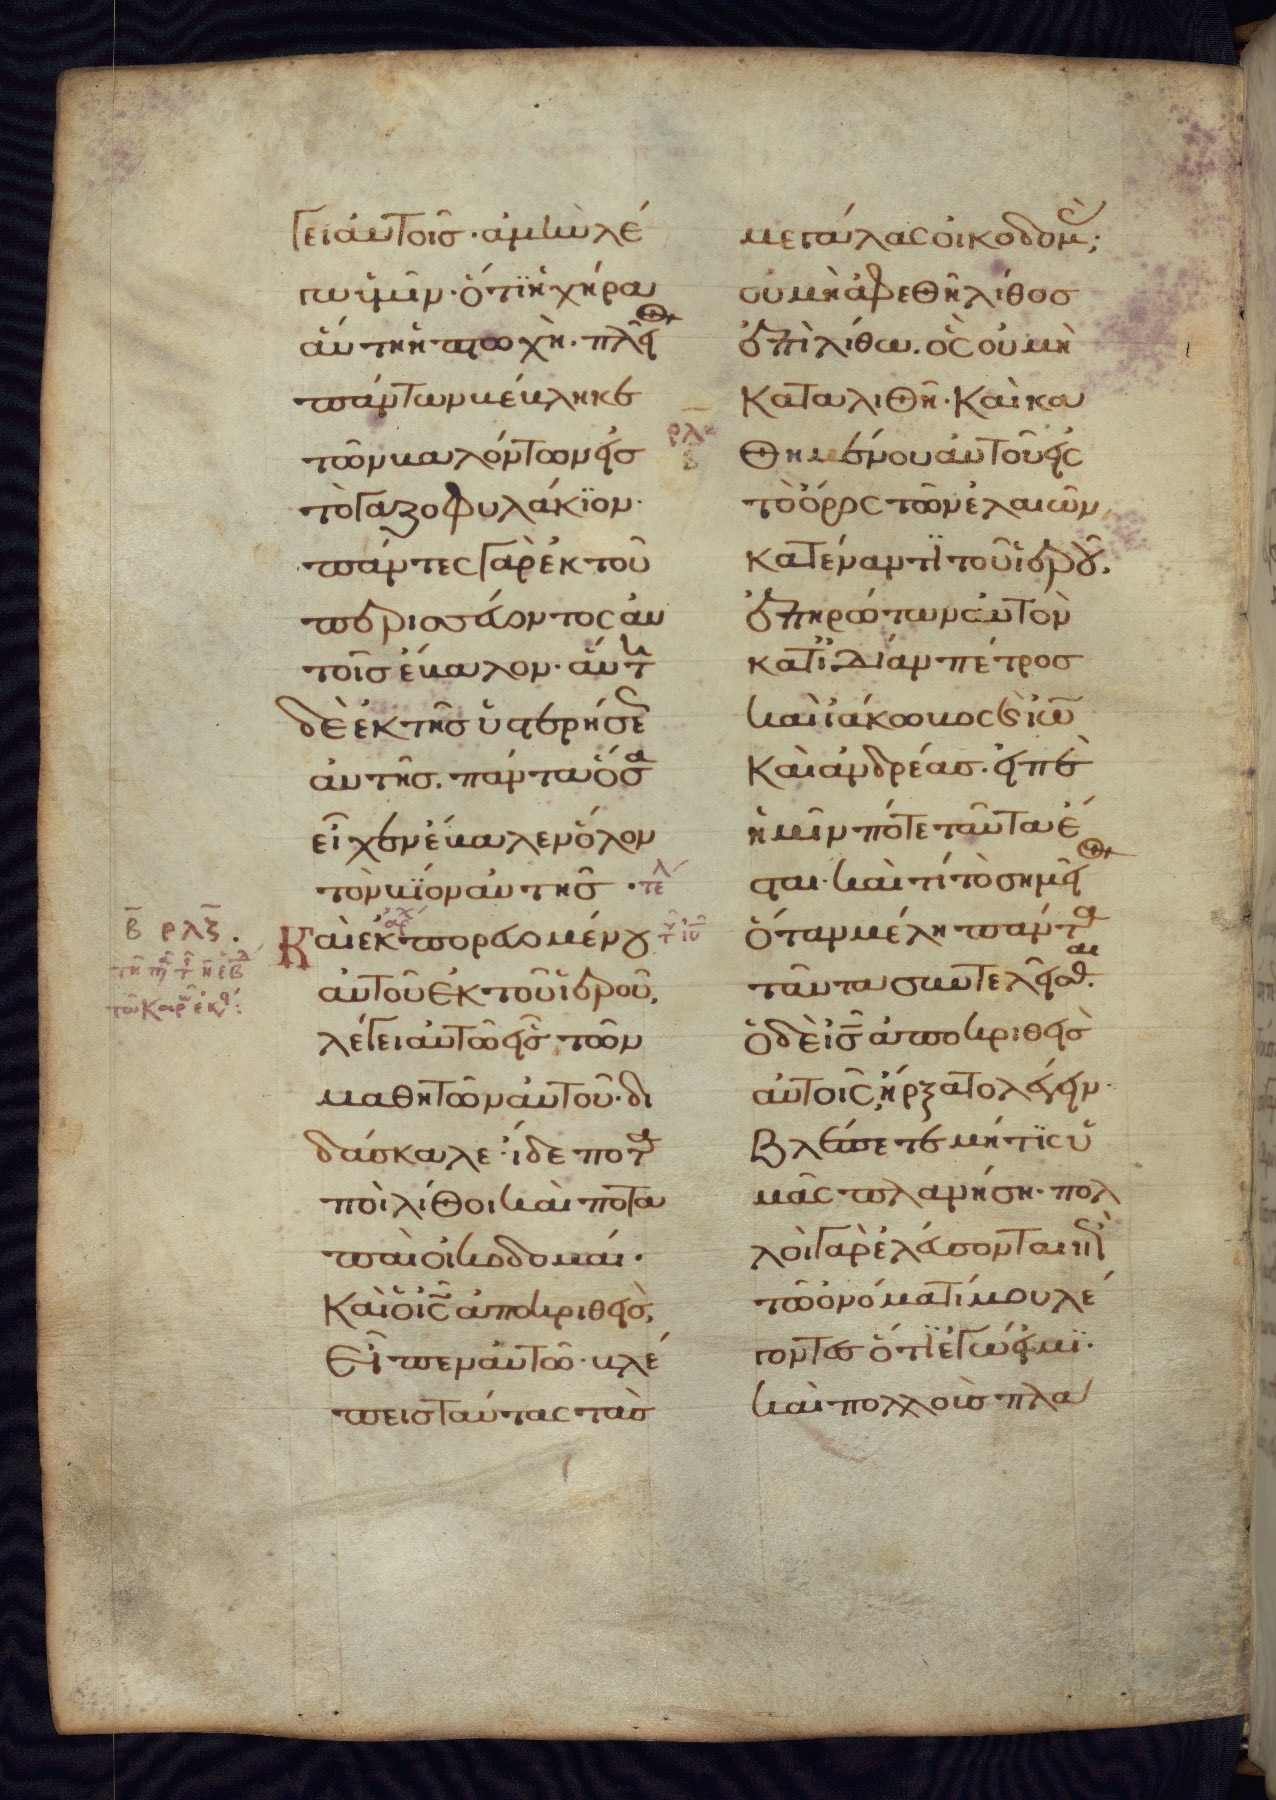 γει αὐτοῖσ · ἀμὴν λέ
γω ὑμῖν · ὅτϊ ἡ χήρα
αὕτη ἡ πτωχὴ · πλεῖ
πάντων βέβληκε
τῶν βαλόντων εἰσ
τὸ γαζοφυλάκϊον ·
πάντες γὰρ ἐκ τοῦ
περισσεύοντος αὐ
τοῖσ ἔβαλον · αὕτ
δὲ ἐκ τῆσ ὑστερήσε
αὐτῆσ. πάντα ὅσα
εἶχεν ἔβαλεν ὅλον
τὸν βϊὸν αὐτῆσ · τέλ
β̄ ρλζ̄ .
Καὶ ἐκπορευομένου
αὐτοῦ ἐκ τοῦ ἱεροῦ,
λέγει αὐτῶ εἷσ τῶν
μαθητῶν αὐτοῦ · δι
δάσκαλε · ἴδε ποτα
ποὶ λίθοι καὶ ποτα
παὶ οἰκοδομαί ·
Καὶ ὁ ισ̄ ἀποκριθεὶσ,
εἶπεν αὐτῶ · βλέ
πεισ ταύτας τὰσ
μεγάλας οἰκοδομ;
οὐ μὴ ἀφεθῆ λίθοσ
ἐπὶ λίθω. ὃς οὐ μὴ
καταλιθῆ · Καὶ κα
θημένου αὐτοῦ εἰς
τὸ ὄρος τῶν ἐλαιῶν
κατέναντϊ τοῦ ἱεροῦ.
ἐπηρώτων αὐτὸν
κατϊδίαν πέτροσ
καὶ ϊάκωβος καὶ ιω̄
Καὶ ἀνδρέασ · εἰπὲ
ἡμῖν πότε ταῦτα ἔ
σται · καὶ τί τὸ σημεῖ
ὅταν μέλη πάντα
ταῦτα συντελεῖσθαι.
ὁ δὲ ισ̄ ἀποκριθεὶσ
αὐτοῖς, ἤρξατο λέγειν ·
Βλέπετε μή τϊς ὑ
μᾶς πλανήση · πολ
λοὶ γὰρ ἐλεύσονται ἐπὶ
τῶ ὀνόματί μου λέ
γοντες ὅτϊ ἐγώ εἰμϊ ·
καὶ πολλοὺσ πλα